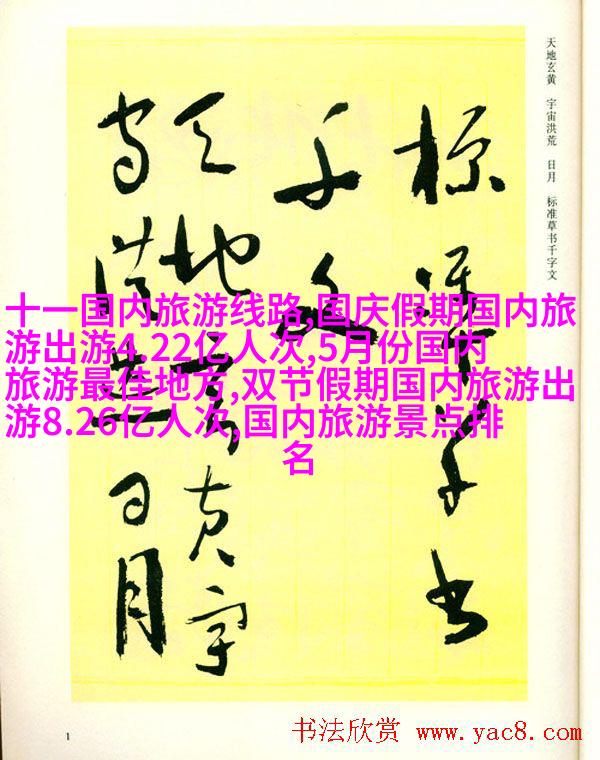 天地玄黄 宇宙洪荒 日月 标准草书千字文
标准草书
千文
天地玄黄宇
宙洪荒日月
十一国内旅游线路,国庆假期国内旅
游出游4.22亿人次,5月份国内
旅游最佳地方,双节假期国内旅游出
游8.26亿人次,国内旅游景点排
名
1
书法欣赏 www.yac8.com